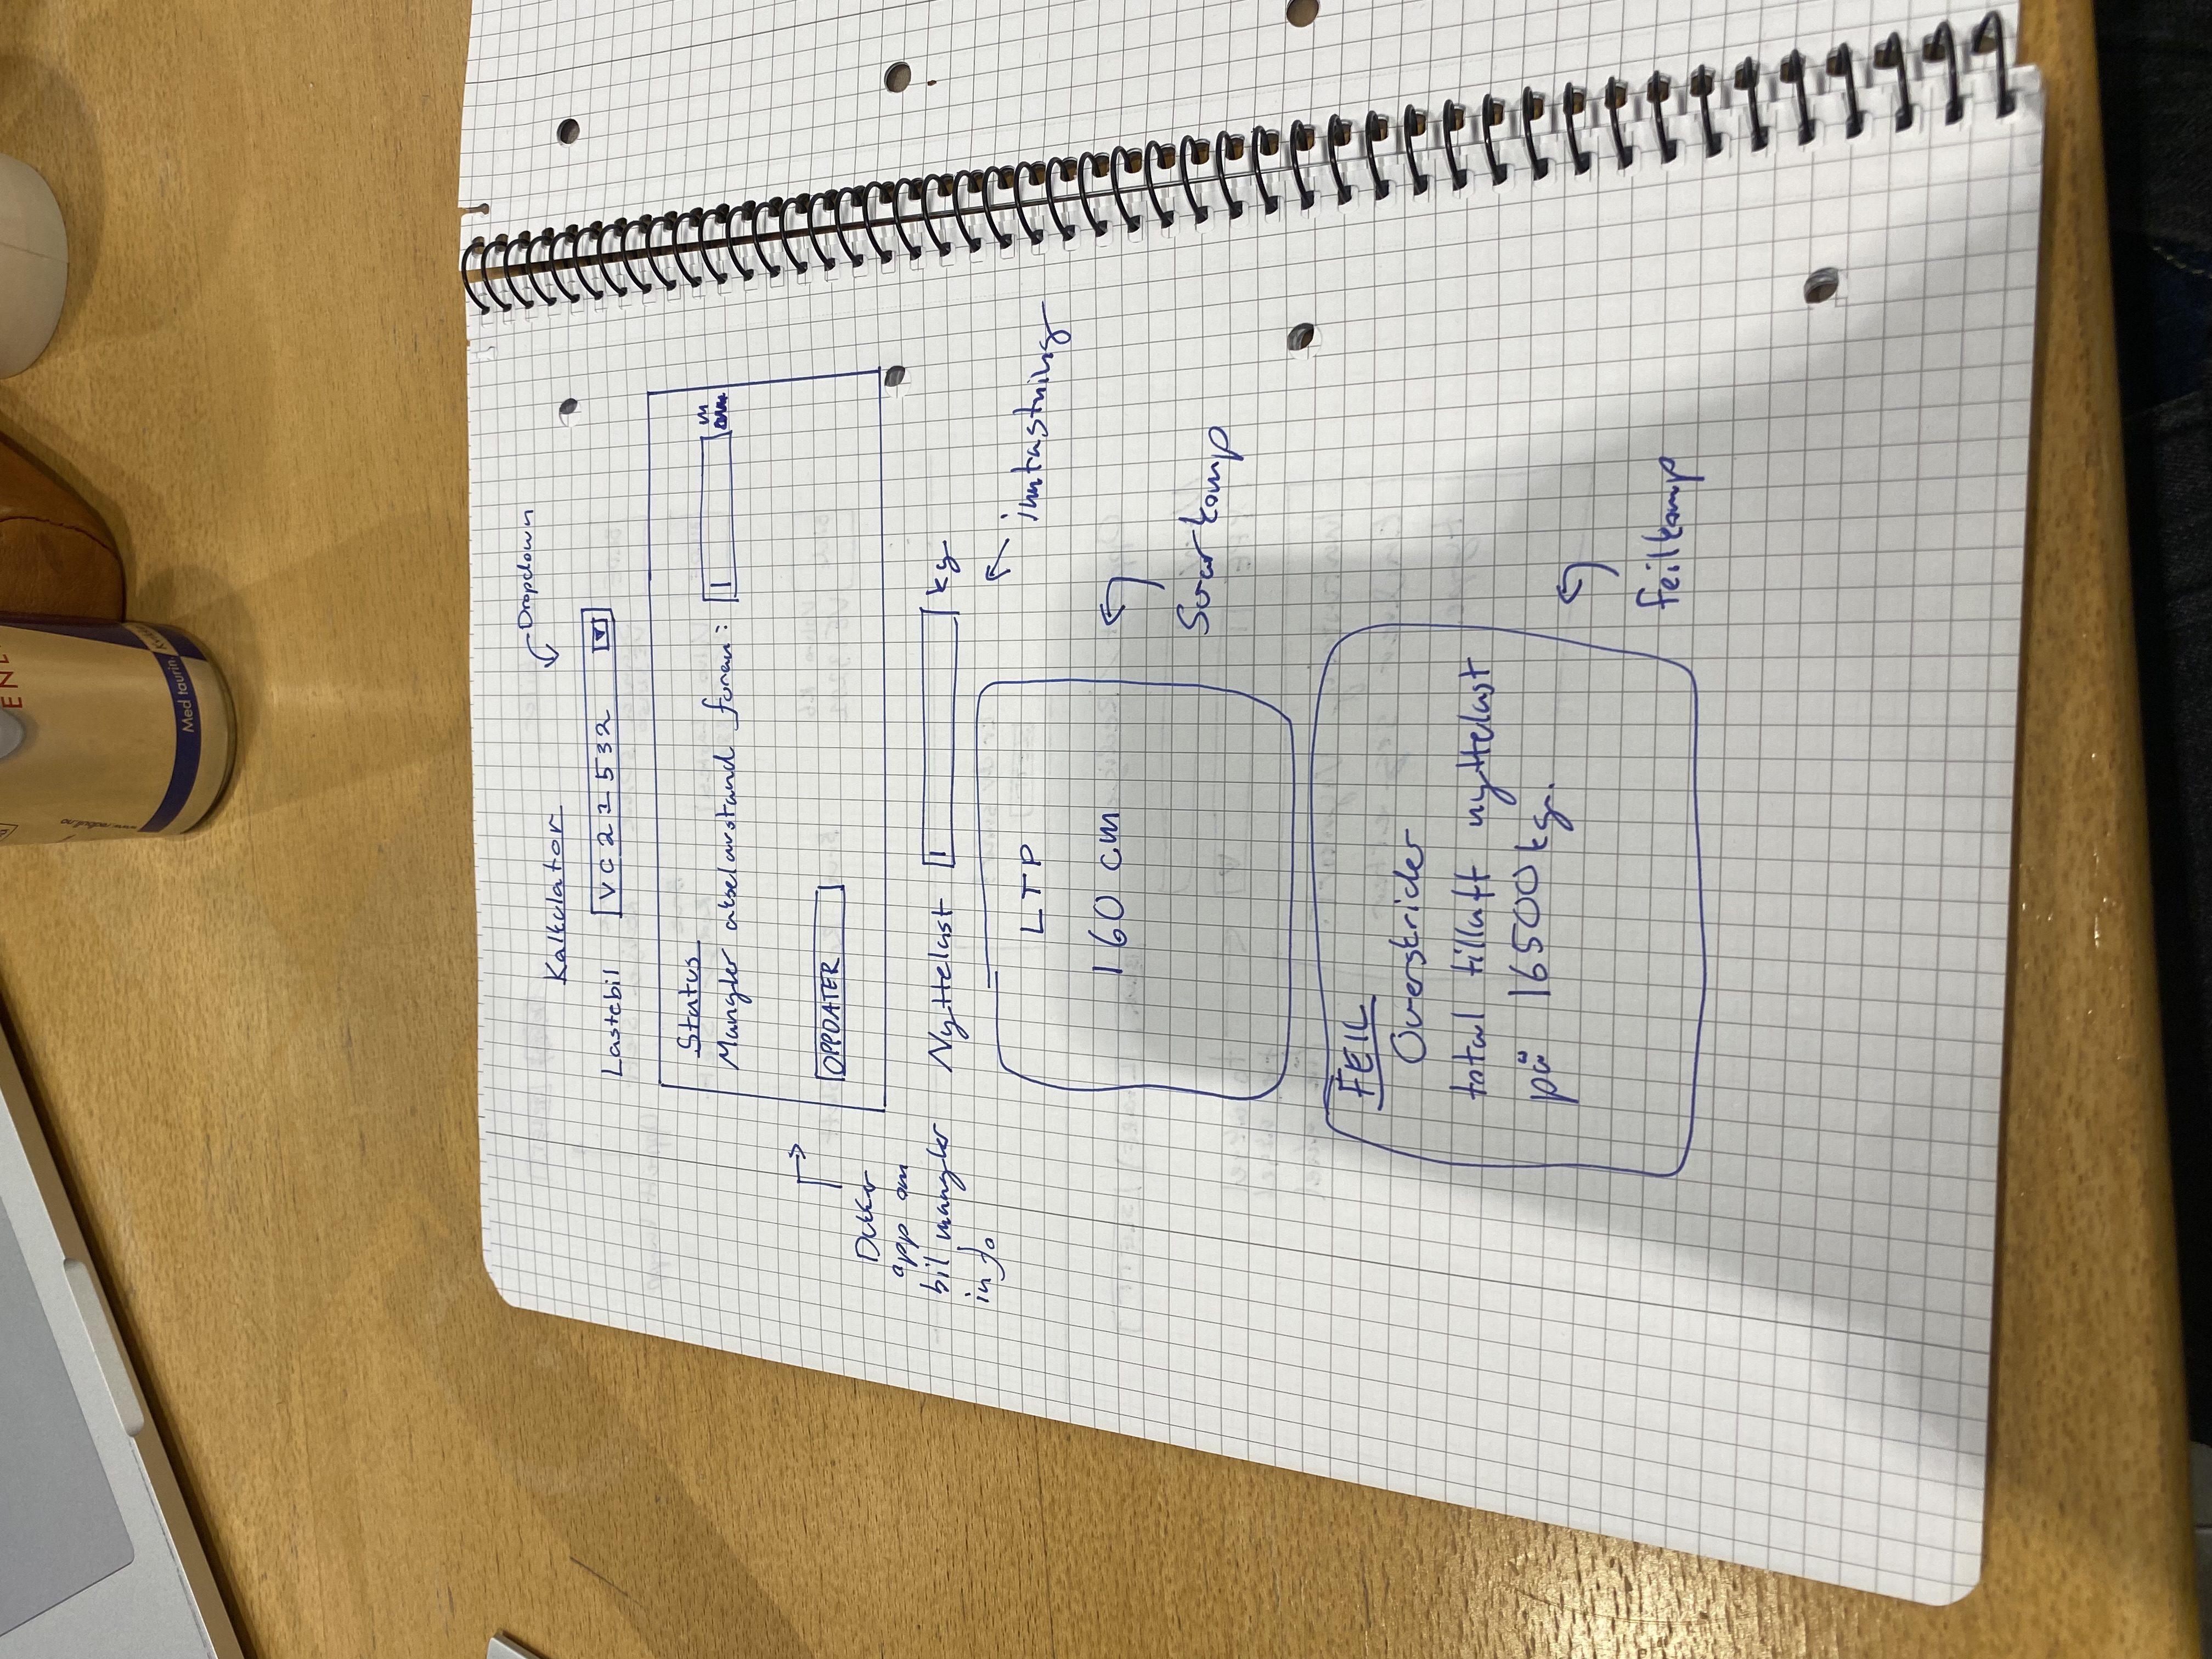 EN
www.redbull.no
Med taurin.
Dropdown
Kalkulator
Lastebil VC21532
Status
Mangler akselavstand foran: m
OPPDATER
Dukker
opp om
bil mangler
info
Nyttelast kg
inntastning
LTP
160 cm
Svarkomp
FEIL
Overskrider
total tillatt nyttelast
på 16500 kg.
Feilkomp